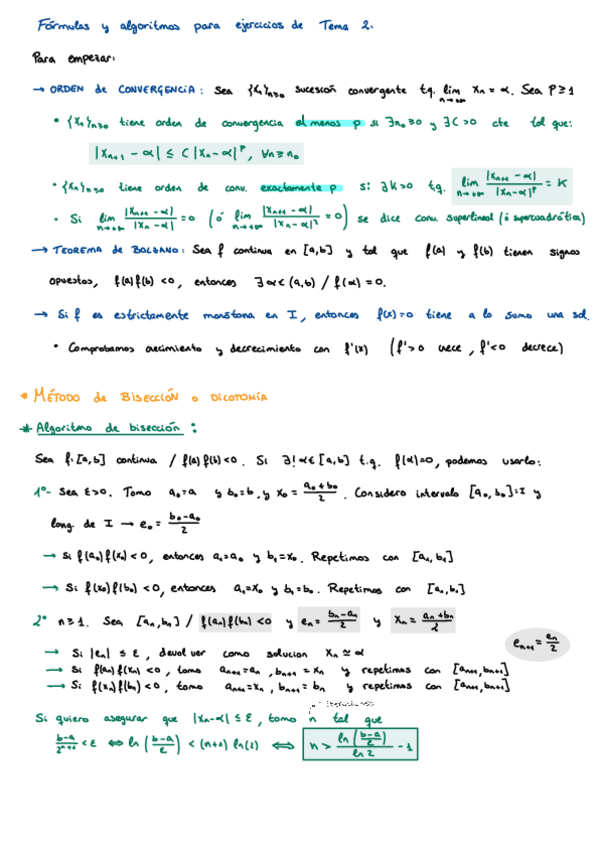 Fórmulas y algoritmos para ejercicios de Tema 2.
Para empezar:
→ ORDEN de CONVERGENCIA: Sea {xₙ}ₙ≥₀ sucesión convergente tq. lim xₙ = α. Sea P≥1
n→+∞
• {xₙ}ₙ≥₀ tiene orden de convergencia al menos p si ∃n₀≥0 y ∃C>0 cte tal que:
|xₙ₊₁ - α| ≤ C|xₙ-α|ᵖ, ∀n≥n₀
• {xₙ}ₙ≥₀ tiene orden de conv. exactamente p si ∃k>0 tq. lim n→+∞ |xₙ₊₁ - α| / |xₙ-α|ᵖ = K
• Si lim n→+∞ |xₙ₊₁ - α| / |xₙ - α| = 0 (ó lim n→+∞ |xₙ₊₁ - α| / |xₙ - α|² = 0) se dice conv. superlineal (ó supercuadrática)
→ TEOREMA de BOLZANO: Sea f continua en [a,b] y tal que f(a) y f(b) tienen signos
opuestos, f(a)f(b) <0, entonces ∃α∈(a,b) / f(α) = 0.
→ Si f es estrictamente monótona en I, entonces f(x)=0 tiene a lo sumo una sol.
• Comprobamos crecimiento y decrecimiento con f'(x) (f'>0 crece, f'<0 decrece)
* MÉTODO de BISECCIÓN o DICOTOMÍA
* Algoritmo de bisección:
Sea f:[a,b] continua / f(a)f(b)<0. Si ∃!α∈[a,b] t.q. f(α)=0, podemos usarlo:
1º- Sea ε>0. Tomo a₀=a y b₀=b, y x₀ = (a₀+b₀)/2. Considero intervalo [a₀,b₀]=I y
long. de I → e₀ = (b₀-a₀)/2
→ Si f(a₀)f(x₀)<0, entonces a₁=a₀ y b₁=x₀. Repetimos con [a₁,b₁]
→ Si f(x₀)f(b₀)<0, entonces a₁=x₀ y b₁=b₀. Repetimos con [a₁,b₁]
2º n≥1. Sea [aₙ,bₙ] / f(aₙ)f(bₙ)<0 y eₙ = (bₙ-aₙ)/2 y xₙ = (aₙ+bₙ)/2
eₙ₊₁ = eₙ/2
→ Si |eₙ| ≤ ε, devolver como solucion xₙ ≃ α
→ Si f(aₙ)f(xₙ)<0, tomo aₙ₊₁=aₙ, bₙ₊₁ = xₙ y repetimos con [aₙ₊₁,bₙ₊₁]
→ Si f(xₙ)f(bₙ)<0, tomo aₙ₊₁=xₙ, bₙ₊₁ = bₙ y repetimos con [aₙ₊₁,bₙ₊₁]
Si quiero asegurar que |xₙ-α| ≤ ε, tomo n tal que
(b-a)/2ⁿ⁺¹ < ε ⇔ ln((b-a)/ε) < (n+1) ln(2) ⇔ n > ln((b-a)/ε)/ln 2 - 1